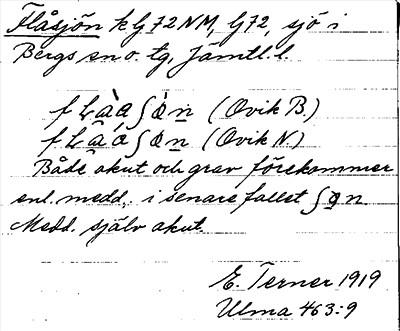 Flåsjön k G 72 NM, G 72, sjö i
Bergs sn o. tg, Jämtl. l.
(Ovik B.)
(Ovik N.)
Både akut och grav förekommer
enl. medd., i senare fallet
Medd. själv akut.
E. Terner 1919
Ulma 463:9